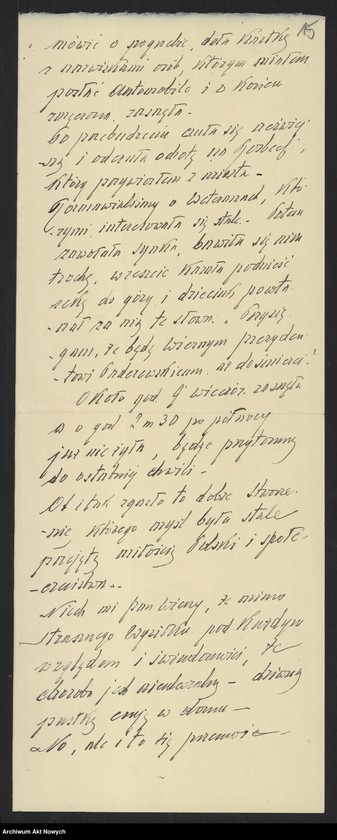 15
mówić o pogodzie, dała kartkę
z nazwiskami osób, którym miałem
posłać Automobile i w końcu
zmęczona zasnęła.
Po przebudzeniu czuła się rzeźwiej
-szą i odczuła ochotę na
który przywiozłem z miasta -
o Weteranach, któ
-rymi interesowała się stale. Potem
zawołała synka, bawiła się nim
trochę, wreszcie kazała podnieść
rękę do góry i dziecinę powta
-rzał za nią te słowa: "Przysię
gam, że będę wiernym prezyden
-towi Paderewskiemu aż do śmierci!"
Około god. 9 wieczór. zasnęła
a o god 2 m 30 po północy
już nie żyła, będąc przytomną
do ostatniej chwili -
Ot i tak zgasło to dobre stworze
-nie, którego myśl była stale
przejęta miłością Polski i społe-
-czeństwa -
Niech mi Pan wierzy, że mimo
strasznego wysiłku pod każdym
względem i świadomości, że
choroba jest nieuleczalną - dziwną
pustkę czuję w domu -
No, ale i to się przemoże -
Archiwum Akt Nowych